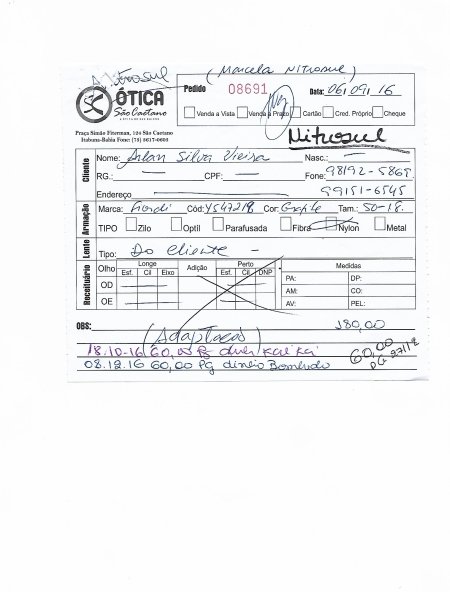 Nitrosul (Marcela Nitrosul)
ÓTICA
São Caetano
Pedido 08691 Data: 06/09/16
Venda a Vista Venda a Prazo Cartão Cred. Próprio Cheque
Praça Simão Fiterman, 124 São Caetano
Itabuna-Bahia Fone: (73) 3617-0603
Nitrosul
Cliente
Nome: Arlan Silva Vieira Nasc.: —
RG.: — CPF: — Fone: 98192-5868
Endereço 99151-6545
Armação
Marca: Fiordi Cód: YS47218 Cor: Grafite Tam.: 50-18.
TIPO Zilo Optil Parafusada Fibra Nylon Metal
Lente
Tipo: Do Cliente —
Receituário
Olho Longe Adição Perto Medidas
Esf. Cil Eixo Esf. Cil DNP
OD
OE
PA: DP:
AM: CO:
AV: PEL:
OBS: 180,00
(Adaptação)
18.10-16 60,00 Pg
60,00
PG
08.12.16 60,00 Pg